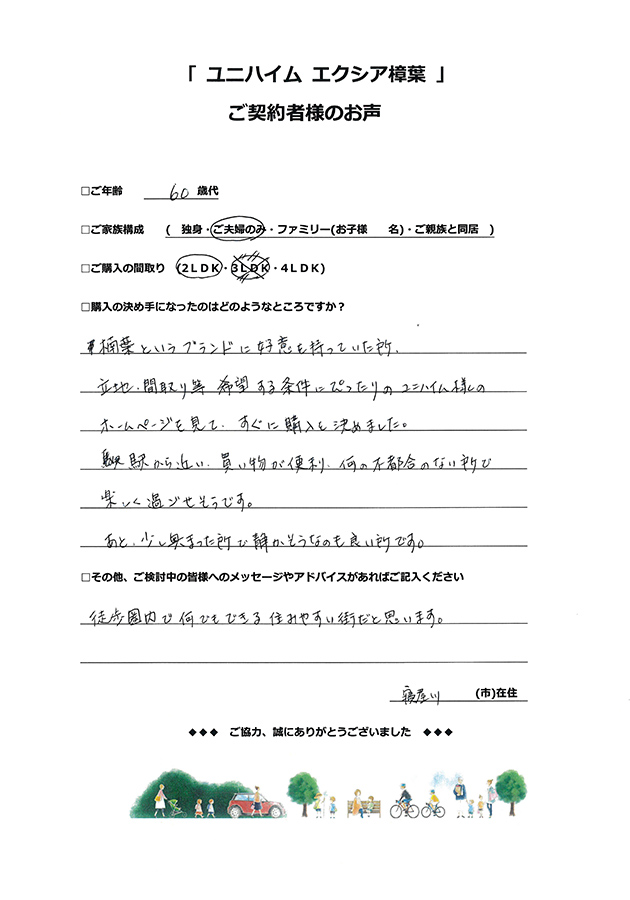 「 ユニハイム エクシア樟葉 」
ご契約者様のお声
□ご年齢 60 歳代
□ご家族構成 ( 独身・ご夫婦のみ・ファミリー(お子様 名)・ご親族と同居 )
□ご購入の間取り (2LDK・3LDK・4LDK)
□購入の決め手になったのはどのようなところですか？
楠葉というブランドに好意を持っていた所、
立地、間取り等 希望する条件にぴったりのユニハイム様の
ホームページを見て、すぐに購入を決めました。
駅から近い、買い物が便利、何の不都合のない所で
楽しく過ごせそうです。
あと、少し奥まった所で静かそうなのも良い所です。
□その他、ご検討中の皆様へのメッセージやアドバイスがあればご記入ください
徒歩圏内で何でもできる住みやすい街だと思います。
寝屋川 (市)在住
◆◆◆ ご協力、誠にありがとうございました ◆◆◆